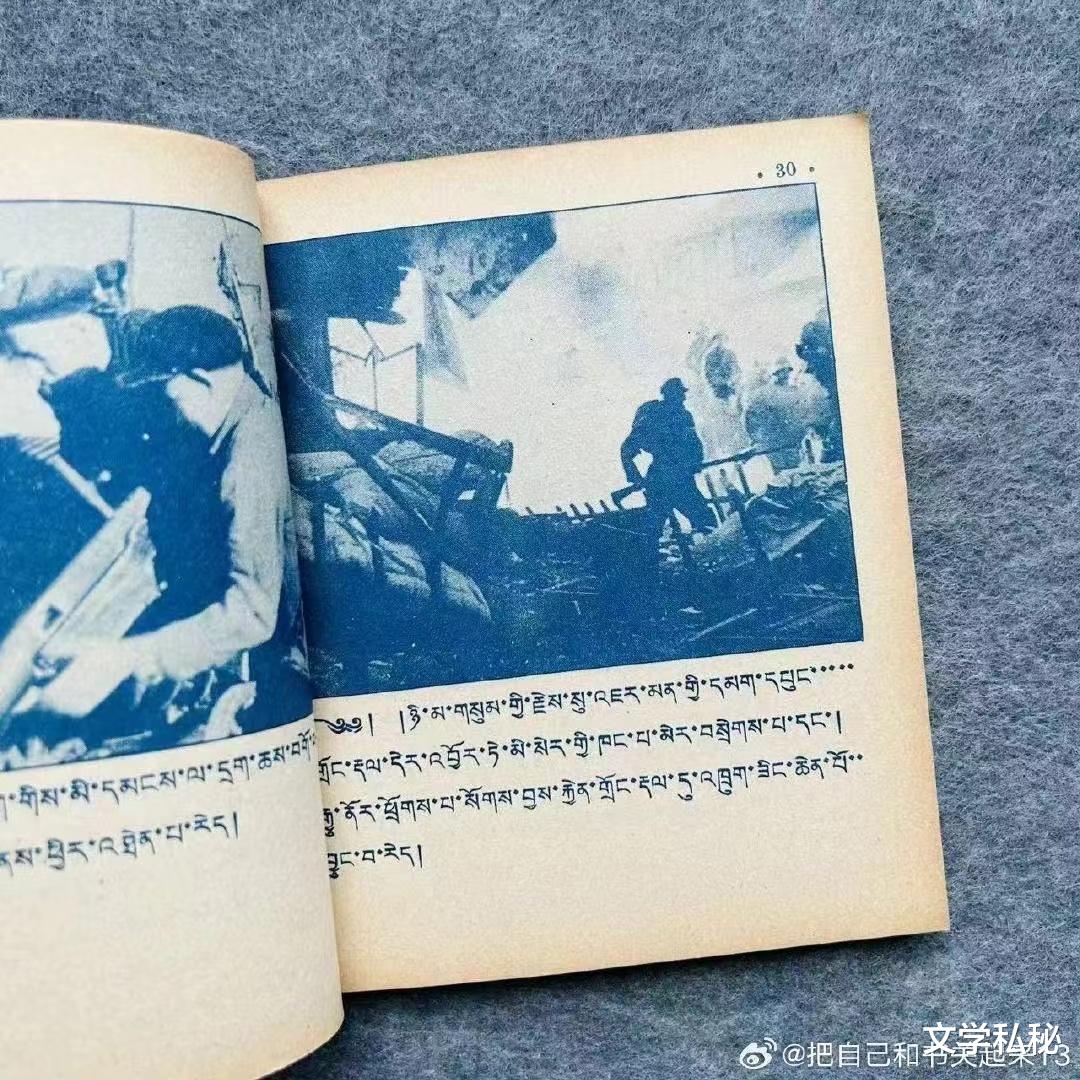 ག་གིས་མི་དམངས་ལ་དྲག་ཆས་བགོ་
ནས་ཕྱིར་འཐེན་པ་རེད།
• 30 •
༄༅། །ཉི་མ་གསུམ་གྱི་རྗེས་སུ་འཇར་མན་གྱི་དམག་དཔུང་་་་་
གྲོང་རྡལ་དེར་འབྱོར་ཏེ་མི་སེར་གྱི་ཁང་པ་མེར་བསྲེགས་པ་དང་།
རྒྱུ་ནོར་ཕྲོགས་པ་སོགས་བྱས་རྐྱེན་གྲོང་རྡལ་དུ་འཁྲུག་ཟིང་ཆེན་པོ་་
བྱུང་བ་རེད།
文学私秘
@把自己和书关起来13